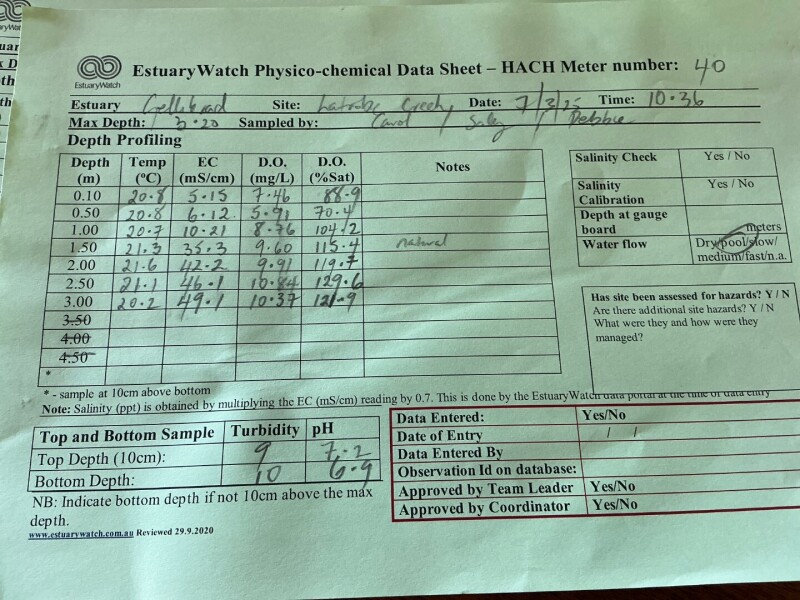 EstuaryWatch
EstuaryWatch Physico-chemical Data Sheet – HACH Meter number: 40
Estuary Gellibrand Site: Latrobe Creek Date: 7/3/25 Time: 10.36
Max Depth: 3.20 Sampled by: Carol / / Debbie
Depth Profiling
Depth (m) Temp (ºC) EC (mS/cm) D.O. (mg/L) D.O. (%Sat) Notes
0.10 20.8 5.15 7.46 88.9
0.50 20.8 6.12 5.91 70.4
1.00 20.7 10.21 8.76 104.2
1.50 21.3 35.3 9.60 115.4 natural
2.00 21.6 42.2 9.91 119.7
2.50 21.1 46.1 10.84 129.6
3.00 20.2 49.1 10.37 121.9
3.50
4.00
4.50
*
* - sample at 10cm above bottom
Note: Salinity (ppt) is obtained by multiplying the EC (mS/cm) reading by 0.7. This is done by the EstuaryWatch data portal at the time of data entry
Salinity Check Yes / No
Salinity Calibration Yes / No
Depth at gauge board meters
Water flow Dry/pool/slow/
medium/fast/n.a.
Has site been assessed for hazards? Y / N
Are there additional site hazards? Y / N
What were they and how were they
managed?
Top and Bottom Sample Turbidity pH
Top Depth (10cm): 9 7.2
Bottom Depth: 10 6.9
NB: Indicate bottom depth if not 10cm above the max
depth.
www.estuarywatch.com.au Reviewed 29.9.2020
Data Entered: Yes/No
Date of Entry / /
Data Entered By
Observation Id on database:
Approved by Team Leader Yes/No
Approved by Coordinator Yes/No